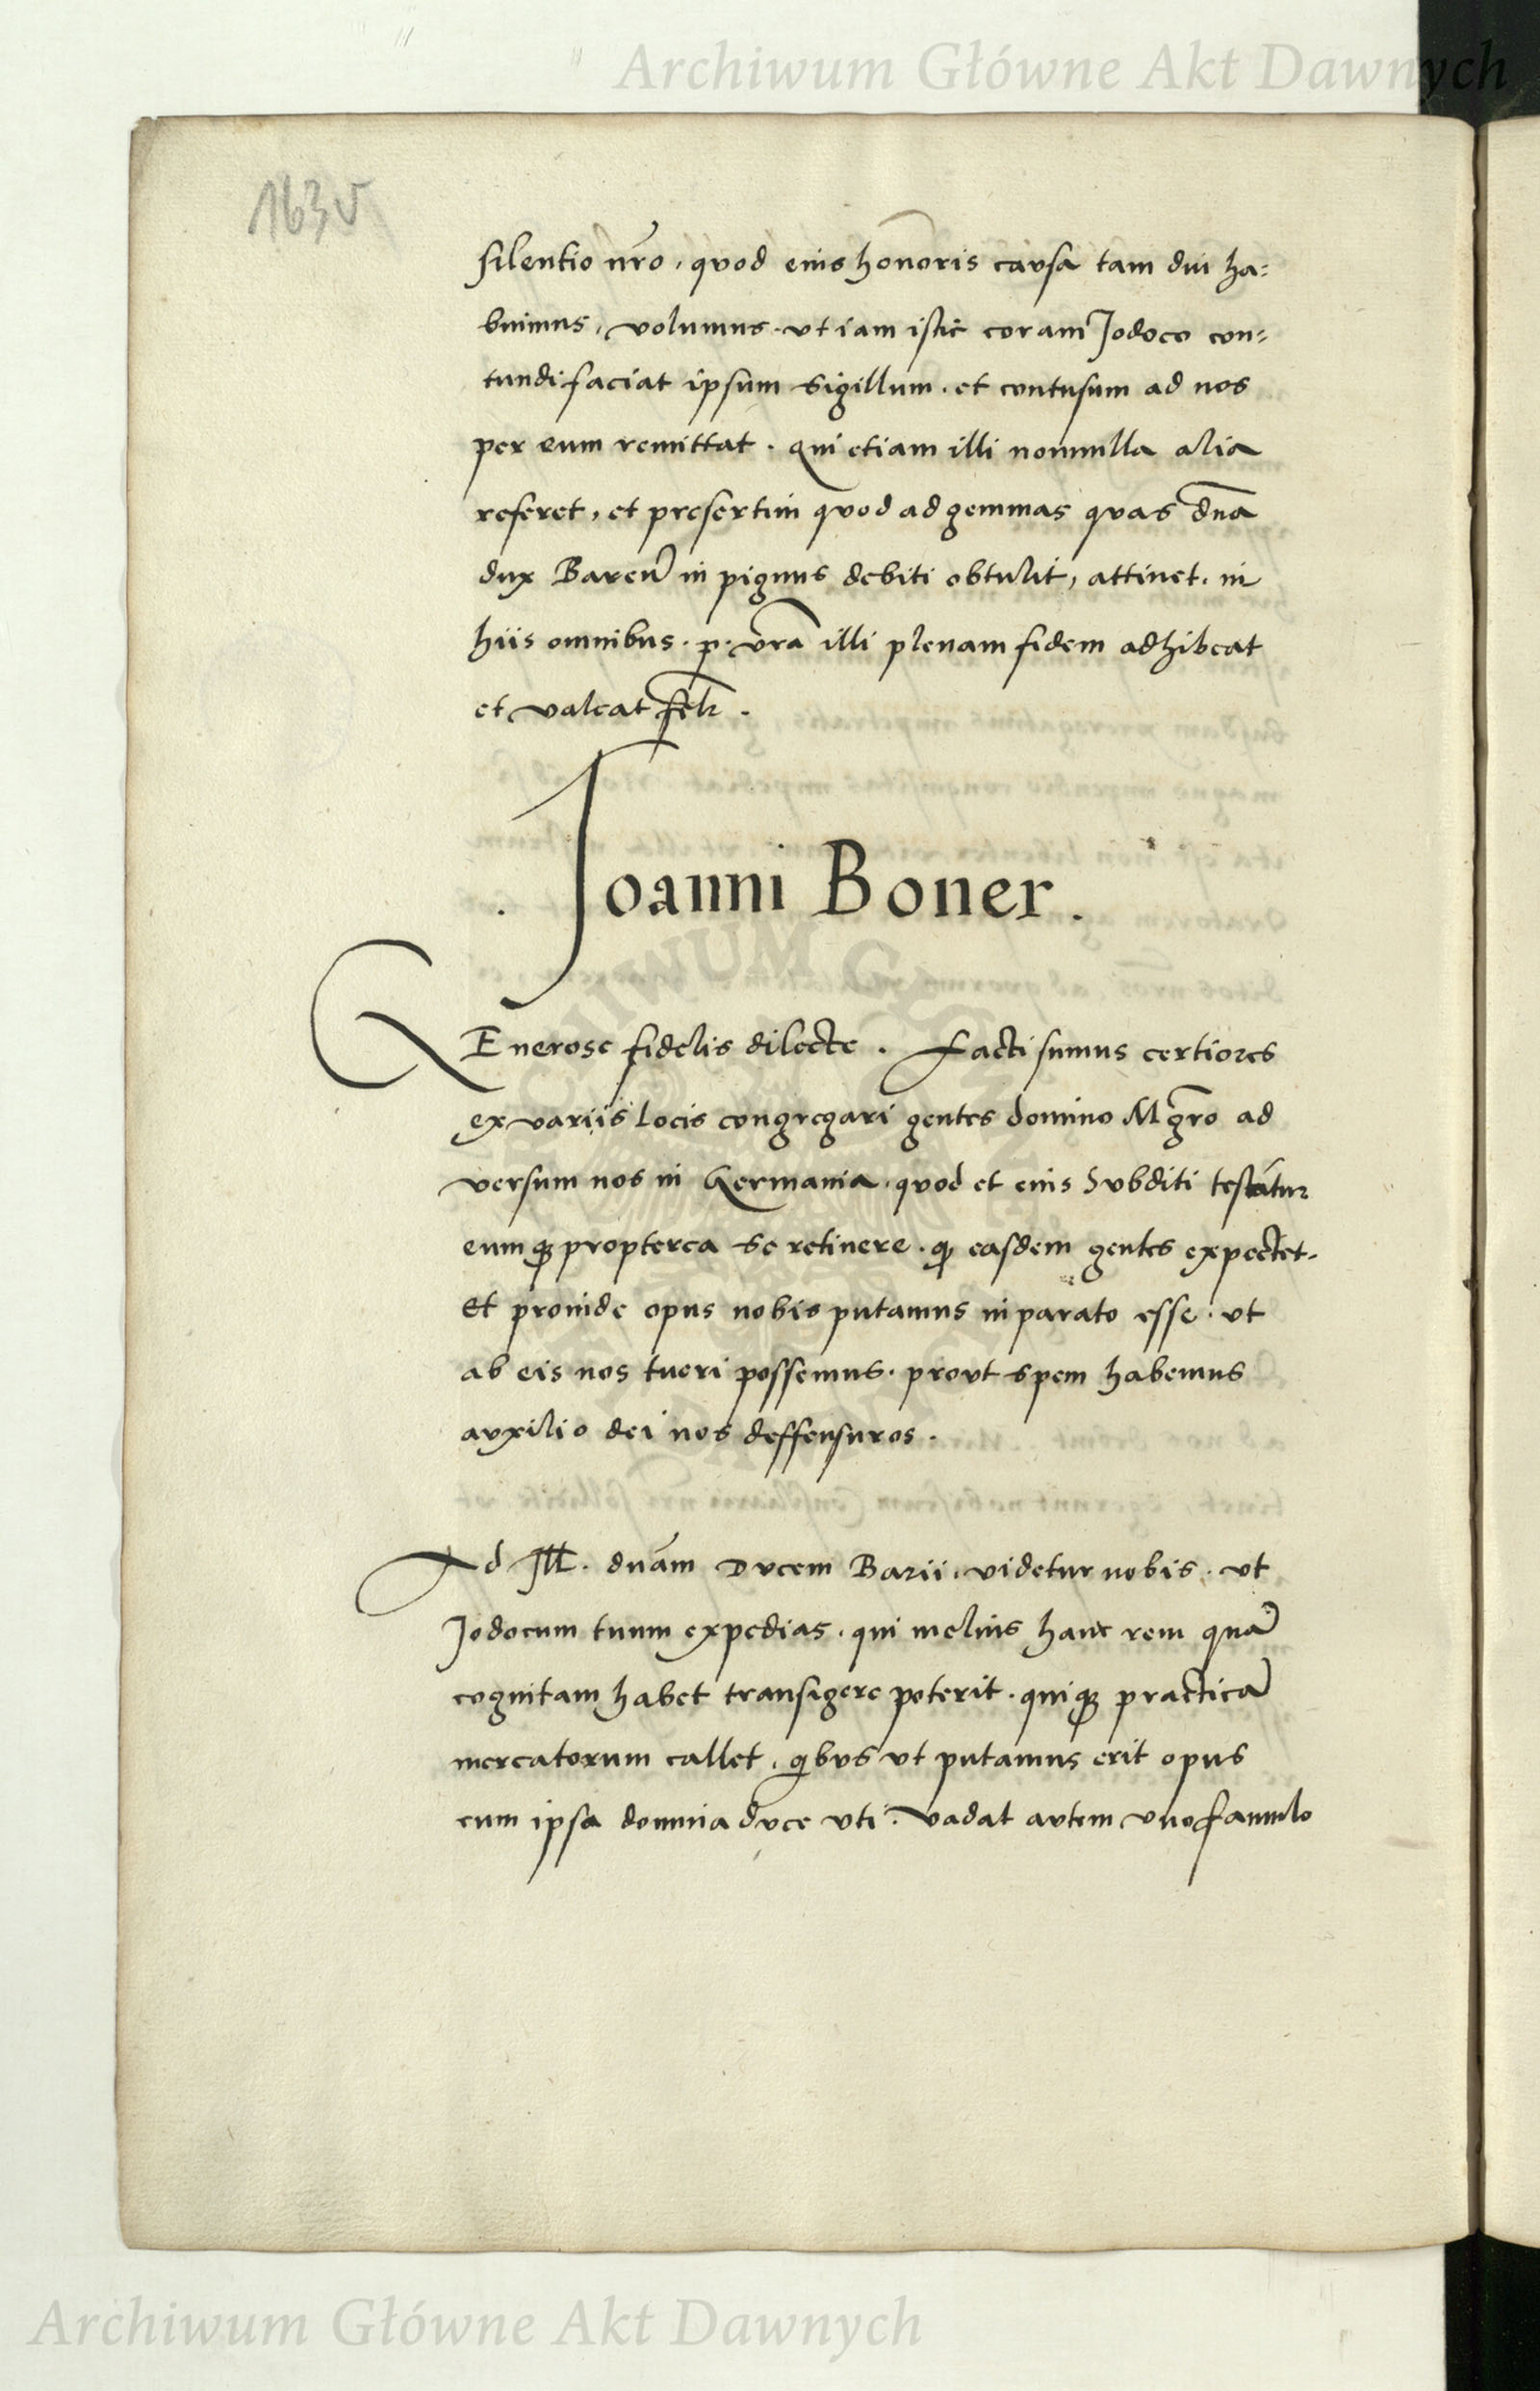 Archiwum Główne Akt Dawnych
163v
silentio nr̄o, quod eius honoris causa tam diu ha=
buimus, volumus. vt iam istic coram Jodoco con=
tundi faciat ipsum sigillum. et contusum ad nos
per eum remittat. qui etiam illi nonnulla alia
referet, et presertim quod ad gemmas quas dn̄a
dux Baren̄ in pignus debiti obtulit, attinet. in
hiis omnibus. p. vr̄a illi plenam fidem adhibeat
et valeat
Joanni Boner.
GEnerose fidelis dilecte. Facti sumus certiores
ex variis locis congregari gentes domino Mgr̄o ad
versum nos in Germania. quod et eius Subditi testantur
eumqꝫ propterea se retinere. qꝫ easdem gentes expectet.
Et proinde opus nobis putamus in parato esse. vt
ab eis nos tueri possemus. prout spem habemus
auxilio dei nos deffensuros.
Ad Ill. dnām Ducem Barii. videtur nobis. vt
Jodocum tuum expedias. qui melius hanc rem quā
cognitam habet transigere poterit. quiqꝫ practicā
mercatorum callet. qibus vt putamus erit opus
cum ipsa domina duce vti. vadat autem vno famulo
Archiwum Główne Akt Dawnych